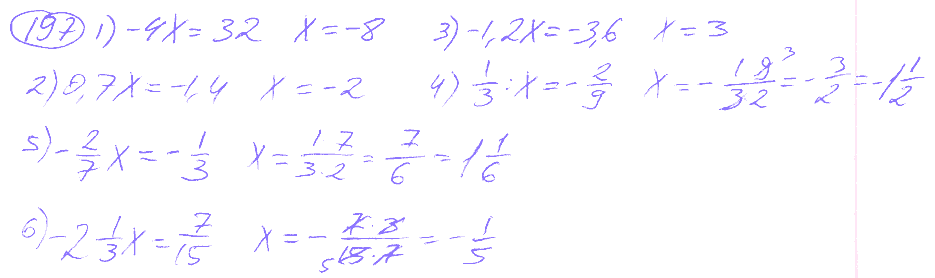 197 1) -4x = 32 x = -8 3) -1,2x = -3,6 x = 3
2) 0,7x = -1,4 x = -2 4) 1/3 : x = -2/9 x = -(1·9³)/(3·2) = -3/2 = -1 1/2
5) -2/7 x = -1/3 x = (1·7)/(3·2) = 7/6 = 1 1/6
6) -2 1/3 x = 7/15 x = -(7·3)/(₅15·7) = -1/5